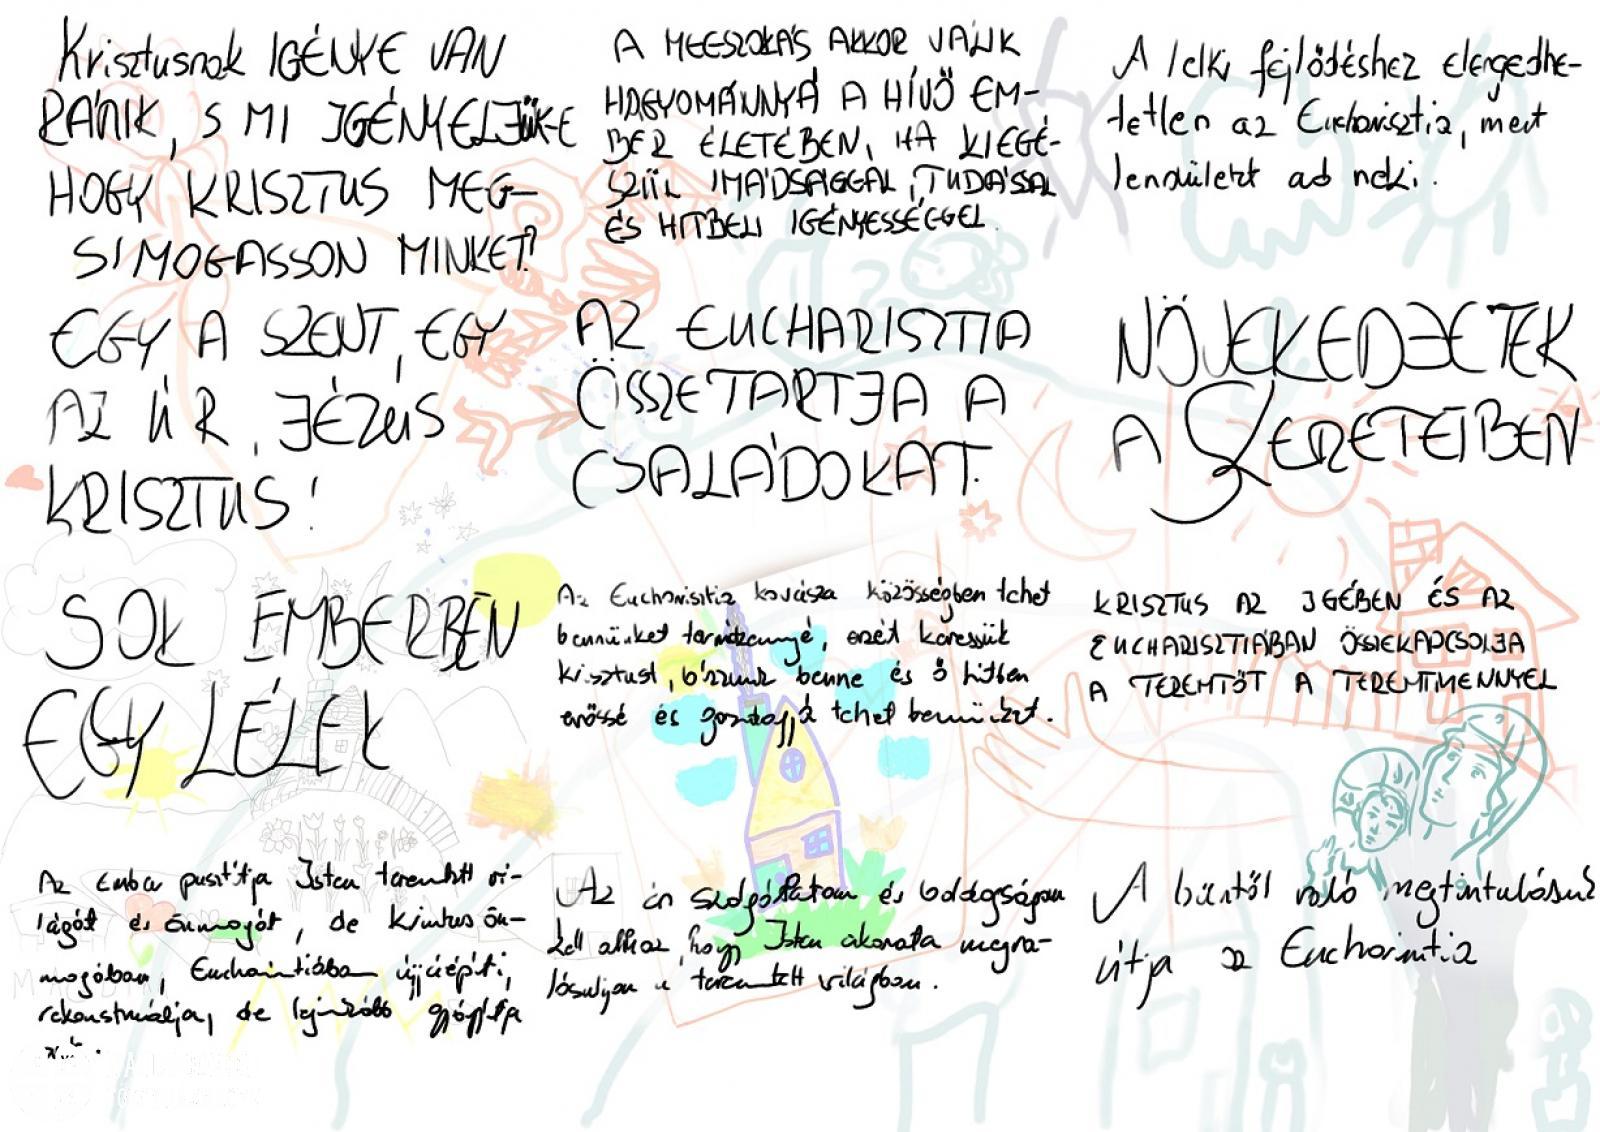 Krisztusnak IGÉNYE VAN
RÁNK, S MI IGÉNYELJÜK-E
HOGY KRISZTUS MEG-
SIMOGASSON MINKET?
A MEGSZOKÁS AKKOR VÁLIK
HAGYOMÁNNYÁ A HÍVŐ EM-
BER ÉLETÉBEN, HA KIEGÉ-
SZÜL IMÁDSÁGGAL, TUDÁSSAL
ÉS HITBELI IGÉNYESSÉGGEL.
A lelki fejlődéshez elengedhe-
tetlen az Eucharisztia, mert
lendületet ad neki.
EGY A SZENT, EGY
AZ ÚR, JÉZUS
KRISZTUS!
AZ EUCHARISZTIA
ÖSSZETARTJA A
CSALÁDOKAT.
NÖVEKEDJETEK
A SZERETETBEN
SOK EMBERBEN
EGY LÉLEK
Az Eucharisztia kovásza közösségben tehet
bennünket termé, ezért keressük
Krisztust, bízzunk benne és ő hitben
erőssé és gazdaggá tehet bennünket.
KRISZTUS AZ IGÉBEN ÉS AZ
EUCHARISZTIÁBAN ÖSSZEKAPCSOLJA
A TEREMTŐT A TEREMTMÉNNYEL
Az Ember pusztítja Isten teremtett vi-
lágát és önmagát, de Krisztus ön-
magában, Eucharisztiában újjáépíti,
rekonstruálja, de leginkább gyógyítja
Az én szolgálatom és boldogságom
kell ahhoz, hogy Isten akarata megva-
lósuljon a teremtett világban.
A bűntől való megtisztulásunk
útja az Eucharisztia